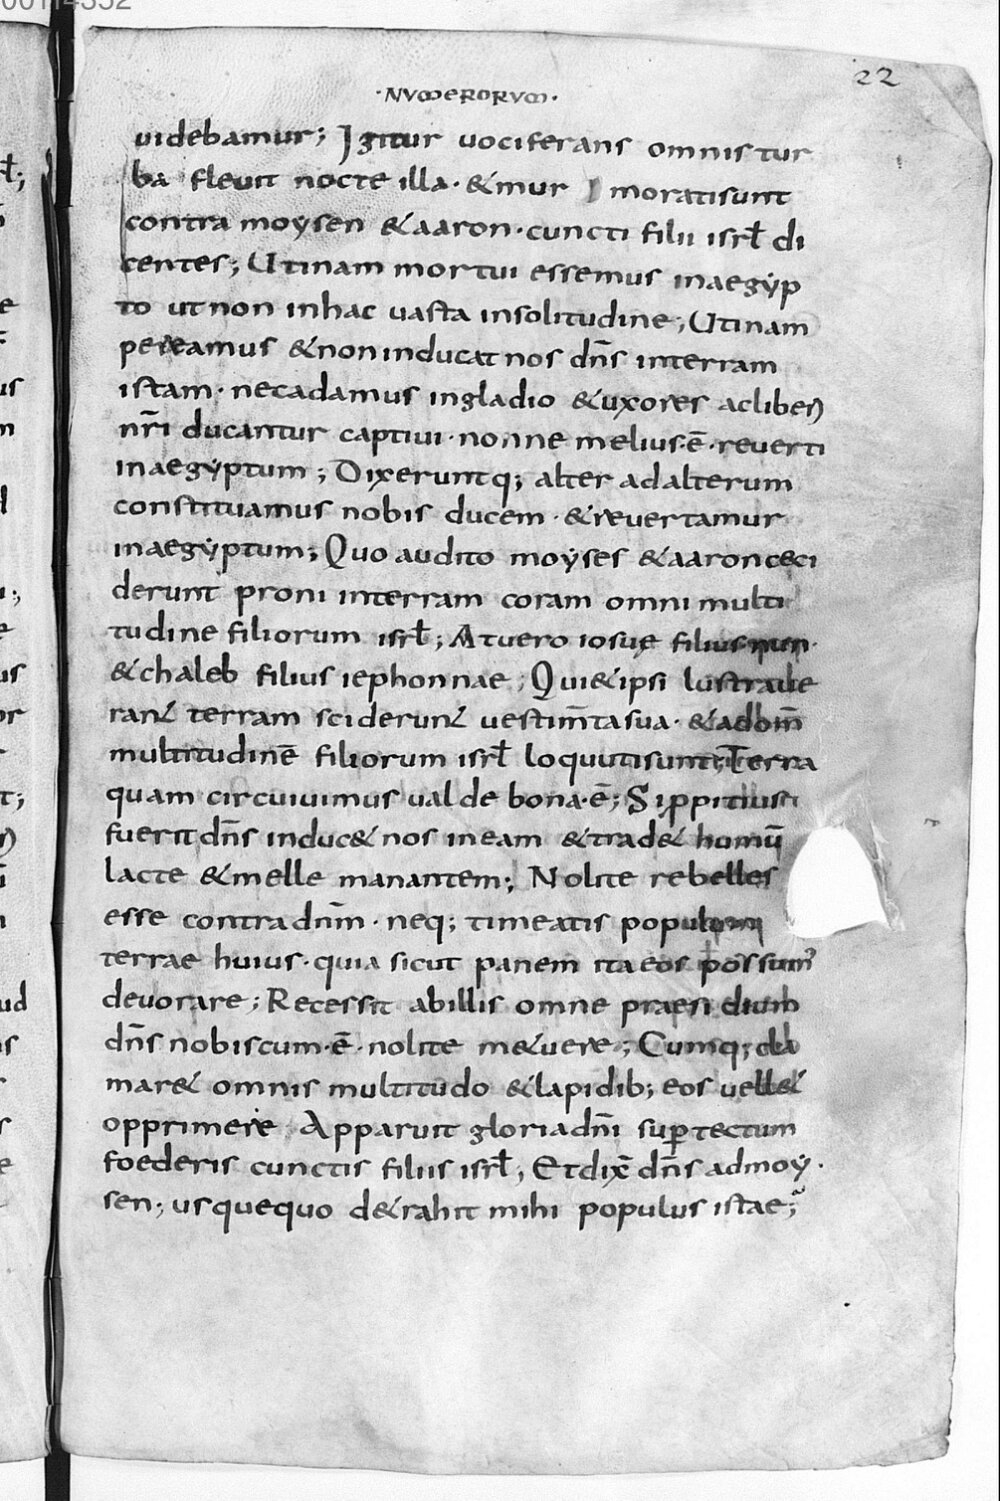 00114352
22
·NUMERORUM·
uidebamur; Igitur uociferans omnis tur
ba fleuit nocte illa· &mur moratisunt
contra moysen &aaron· cuncti filii isrł di
centes; Utinam mortui essemus inaegẏp
to ut non inhac uasta insolitudine; Utinam
pereamus &non inducat nos dn̄s interram
istam· necadamus ingladio &uxores acliberi
nr̄i ducantur captiui· nonne melius·ē· reuerti
inaegẏptum; Dixeruntq; alter adalterum
constituamus nobis ducem· &reuertamur
inaegẏptum; Quo audito moẏses &aaron ceci
derunt proni interram coram omni multi
tudine filiorum isrł; Atuero iosuę filius nun·
&chaleb filius iephonnae; Qui&ipsi lustraue
ran& terram sciderun& uestim̄tasua· &adom̄
multitudinē filiorum isrł loquutisunt; Terra
quam circuiuimus ualde bona·ē; Sippitius
fuerit dn̄s induc& nos ineam &trad& humū
lacte &melle manantem; Nolite rebelles
esse contra dnm̄· neq; timeatis populum
terrae huius· quia sicut panem ita eos possum᾽
deuorare; Recessit abillis omne praesidium
dn̄s nobiscum·ē· nolite m&uere; Cumq; cla
mar& omnis multitudo &lapidib; eos uell&
opprimere Apparuit gloria dn̄i sup̱ tectum
foederis cunctis filiis isrł; Etdix̄ dn̄s admoẏ·
sen; usquequo d&rahit mihi populus istae;